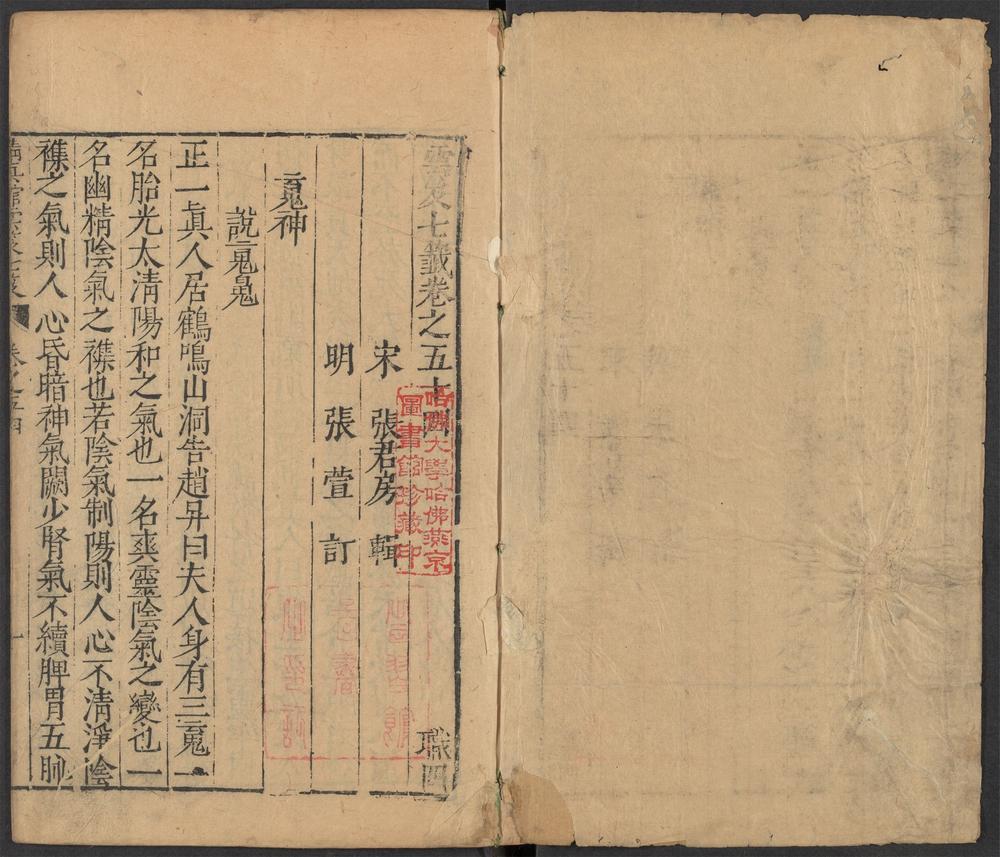 雲笈七籤卷之五十四
職四
宋 張君房 輯
明 張萱 訂
䰟神
說䰟鬽
正一眞人居鶴鳴山洞告趙昇曰夫人身有三䰟一
名胎光太淸陽和之氣也一名爽靈陰氣之變也一
名幽精陰氣之襍也若陰氣制陽則人心不淸淨陰
襍之氣則人心昏暗神氣闕少腎氣不續脾胃五脈
卷之五十四
一
哈佛大學哈佛燕京
圖書館珍藏印